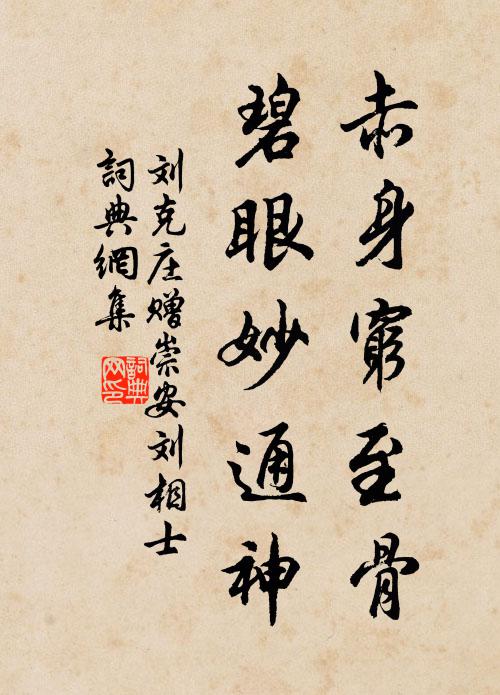 赤身窮至骨
碧眼妙通神
刘克庄赠崇安刘相士
詞典網集
詞典网印